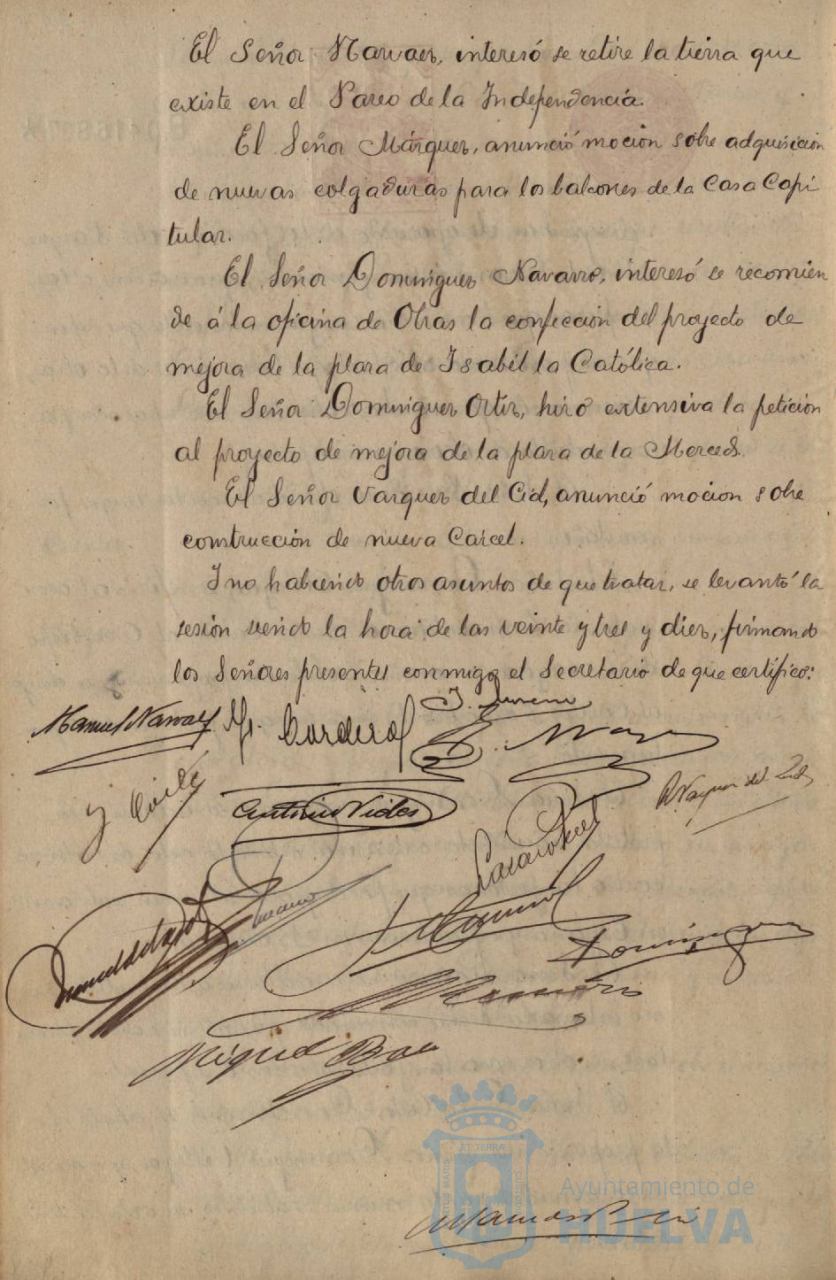 El Señor Narvaez, interesó se retire la tierra que
existe en el Paseo de la Independencia.
El Señor Márquez, anunció mocion sobre adquisicion
de nuevas colgaduras para los balcones de la Casa Capi
tular.
El Señor Dominguez Navarro, interesó se recomien
de á la oficina de Obras la confección del proyecto de
mejora de la plaza de Isabel la Católica.
El Señor Dominguez Ortiz, hizo extensiva la petición
al proyecto de mejora de la plaza de la Merced.
El Señor Vazquez del Cid, anunció mocion sobre
construcción de nueva Carcel.
I no habiendo otros asuntos de que tratar, se levantó la
sesión siendo la hora de las veinte y tres y diez, firmando
los Señores presentes conmigo el Secretario de que certifico:
Manuel Narvaez
Cordero
J.
Antonio Vides
Vazquez del Cid
Dominguez
Miguel
Ayuntamiento de
HUELVA